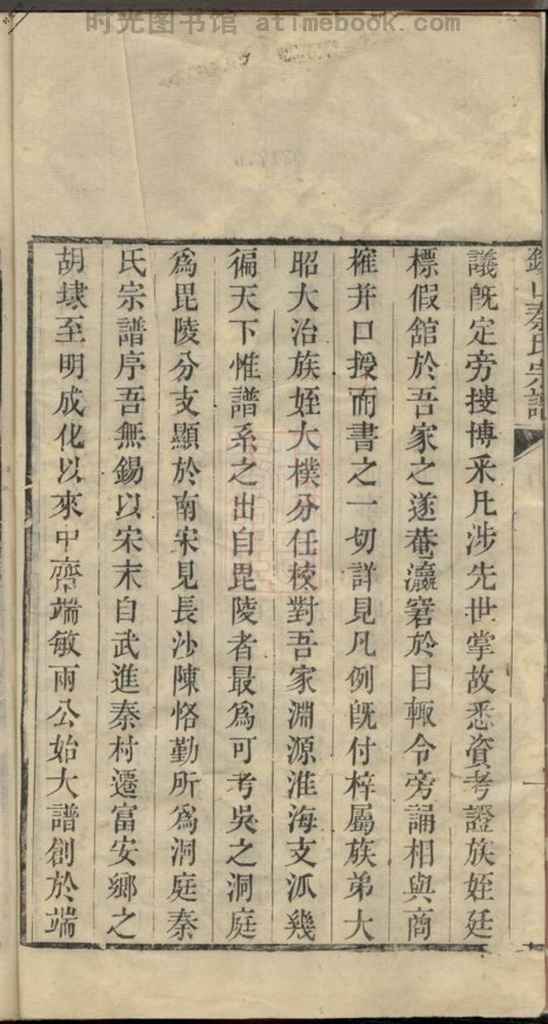 时光图书馆 atimebook.com
錫山秦氏宗譜
議旣定旁搜博采凡涉先世掌故悉資考證族姪廷
標假舘於吾家之遂菴瀛窘於目輙令旁誦相與商
搉幷口授而書之一切詳見凡例旣付梓屬族弟大
昭大治族姪大樸分任校對吾家淵源淮海支派幾
徧天下惟譜系之出自毘陵者最爲可考吳之洞庭
爲毘陵分支顯於南宋見長沙陳恪勤所爲洞庭秦
氏宗譜序吾無錫以宋末自武進秦村遷富安鄉之
胡埭至明成化以來中齋端敏兩公始大譜創於端